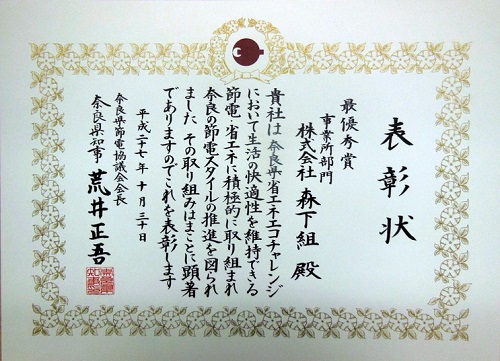 表彰状
最優秀賞
事業所部門
株式会社 森下組 殿
貴社は奈良県省エネエコチャレンジ
において生活の快適性を維持できる
節電・省エネに積極的に取り組まれ
奈良の節電スタイルの推進を図られ
ました その取り組みはまことに顕著
でありますのでこれを表彰します
平成二十七年十月三十日
奈良県節電協議会会長
奈良県知事 荒井正吾